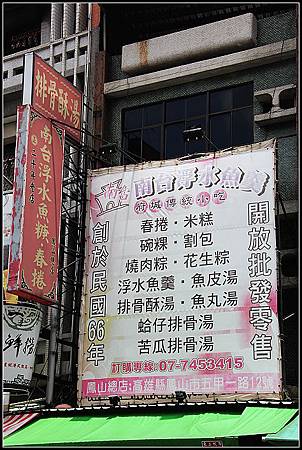 排骨酥湯
二十年老店
南台浮水魚焿 春捲
南台浮水魚焿
府城傳統小吃
創於民國66年
開放批發零售
春捲・米糕
碗粿・割包
燒肉粽・花生粽
浮水魚羹・魚皮湯
排骨酥湯・魚丸湯
蛤仔排骨湯
苦瓜排骨湯
訂購專線:07-7453415
鳳山總店:高雄縣鳳山市五甲一路129號